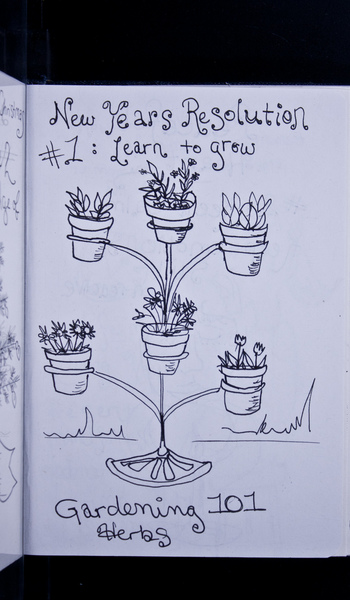 New Years Resolution
#1: Learn to grow
Gardening 101
Herbs